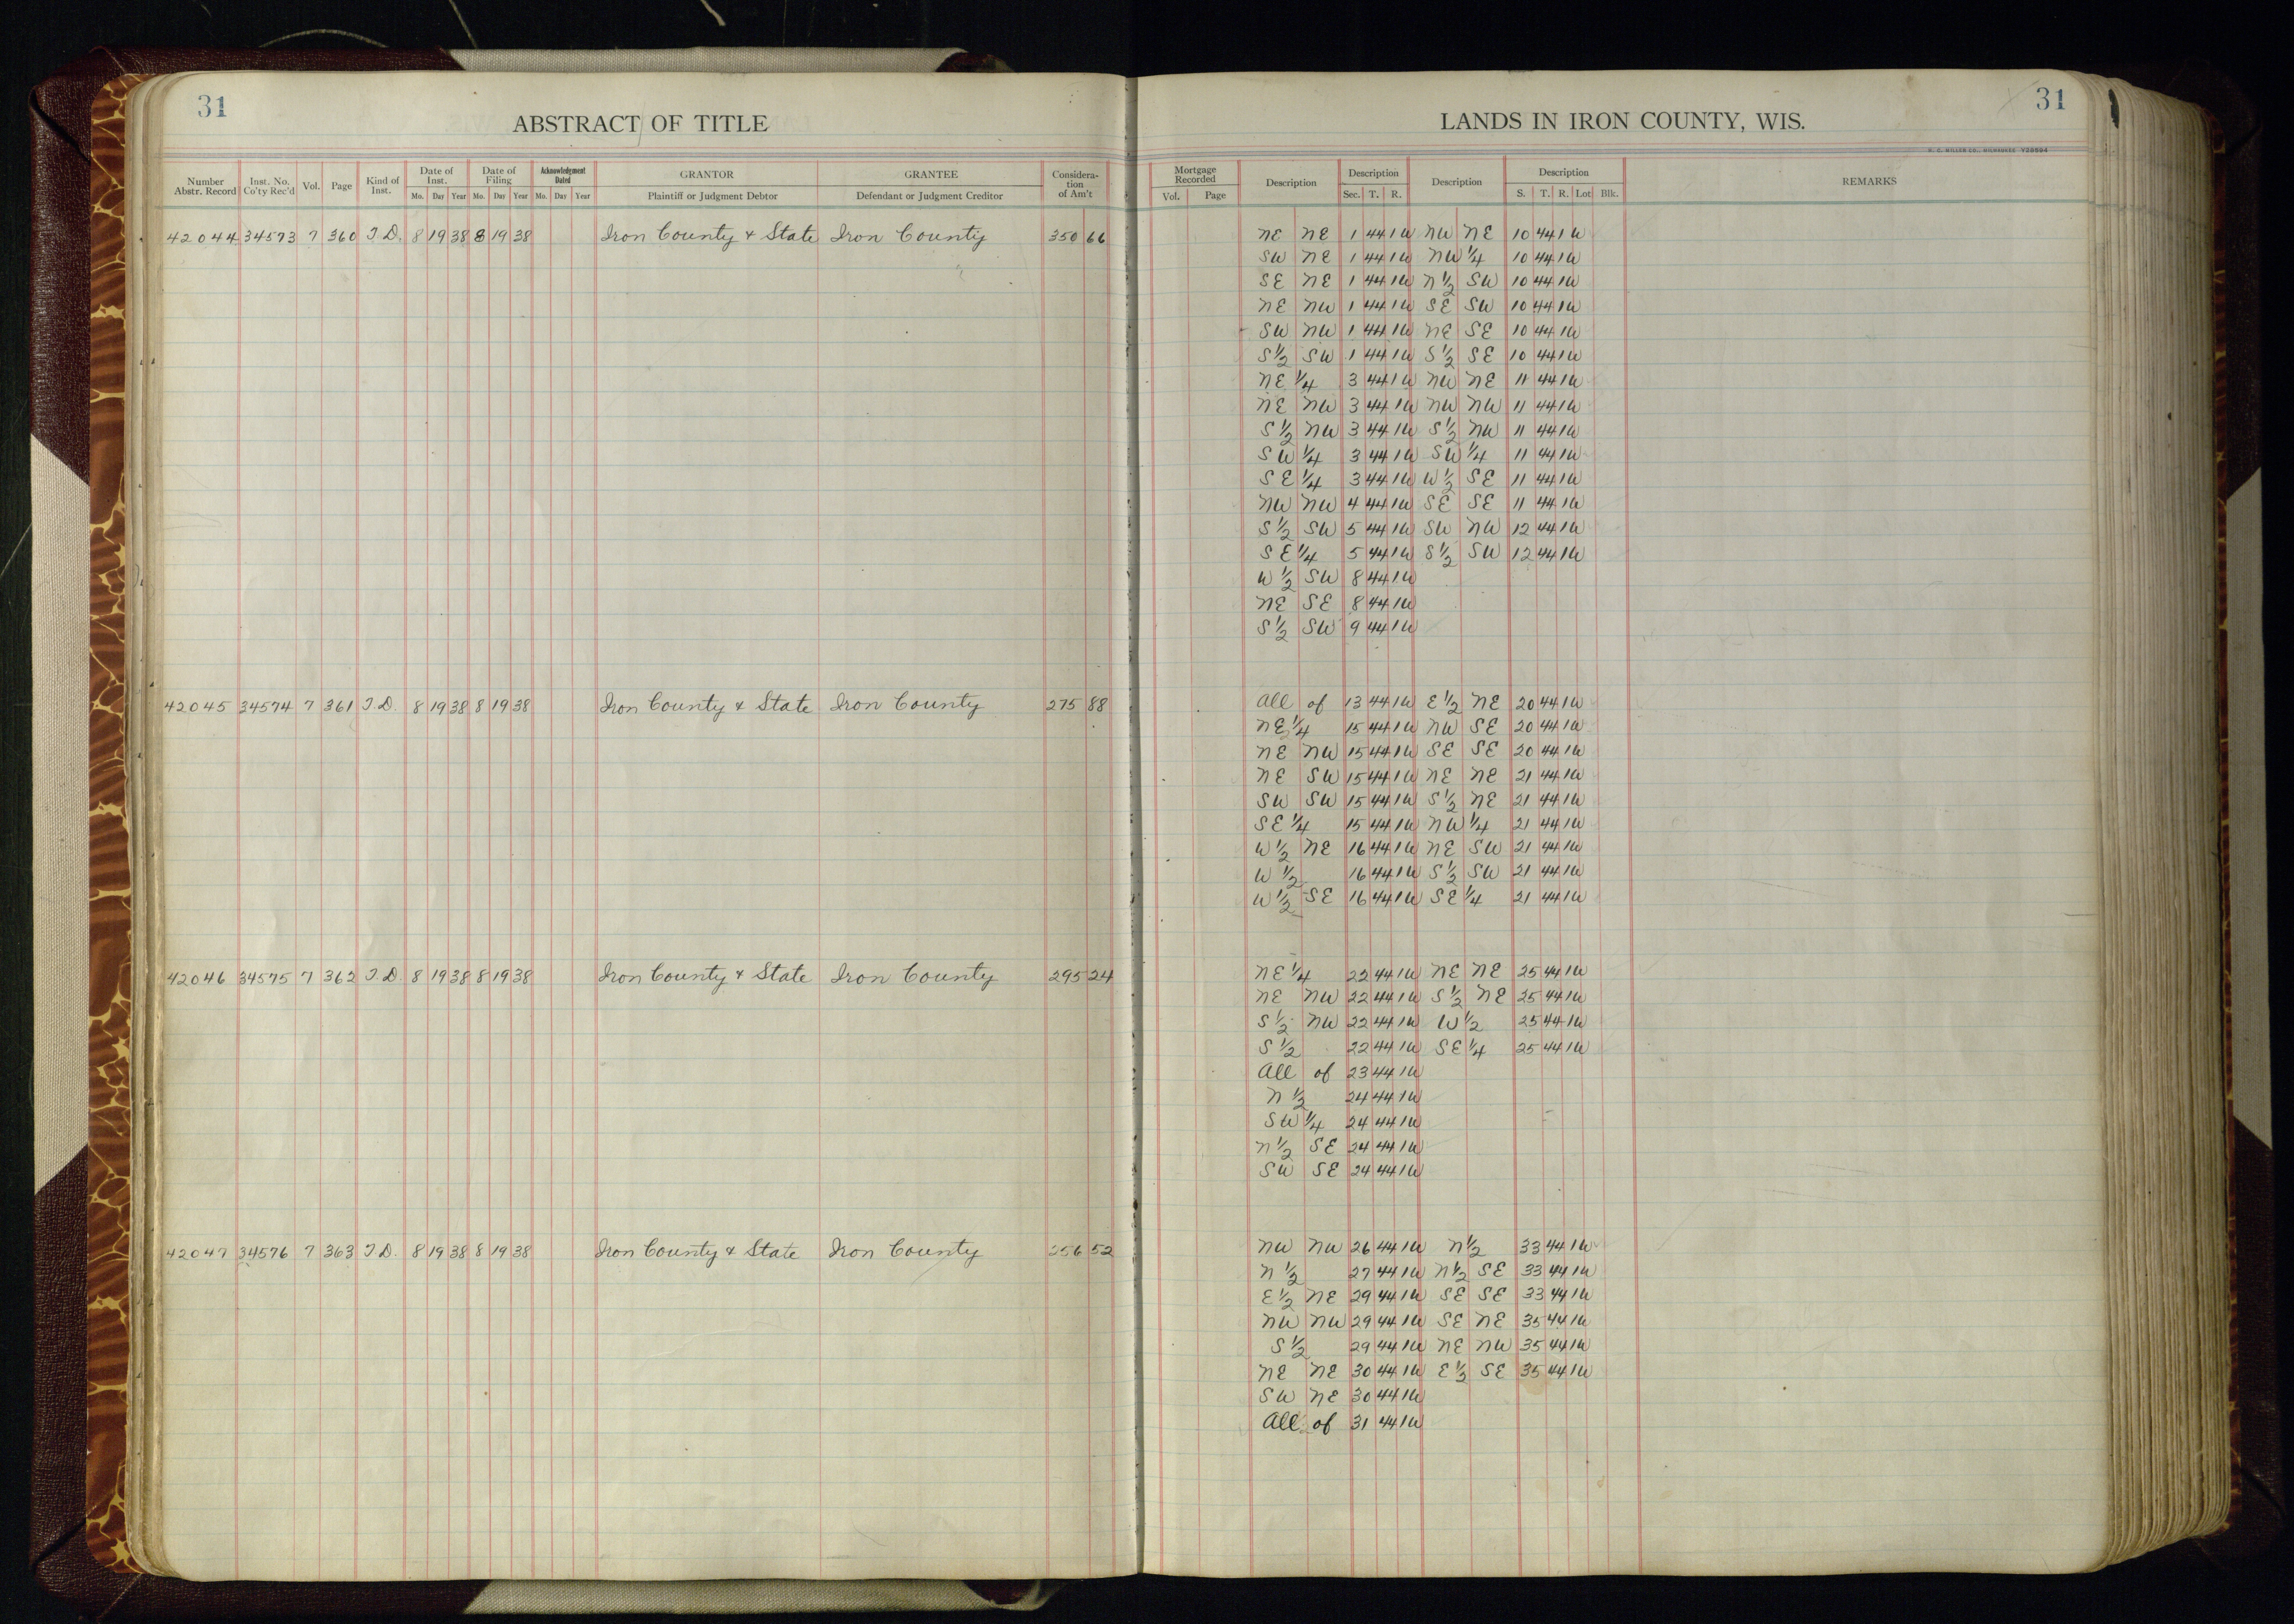 31
ABSTRACT OF TITLE
Number Abstr. Record | Inst. No. Co'ty Rec'd | Vol. | Page | Kind of Inst. | Date of Inst. Mo. Day Year | Date of Filing Mo. Day Year | Acknowledgment Dated Mo. Day Year | GRANTOR Plaintiff or Judgment Debtor | GRANTEE Defendant or Judgment Creditor | Considera-tion of Am't
42044 34573 7 360 T.D. 8 19 38 8 19 38 Iron County & State Iron County 350 66
42045 34574 7 361 T.D. 8 19 38 8 19 38 Iron County & State Iron County 275 88
42046 34575 7 362 T.D. 8 19 38 8 19 38 Iron County & State Iron County 295 24
42047 34576 7 363 T.D. 8 19 38 8 19 38 Iron County & State Iron County 256 52
31
LANDS IN IRON COUNTY, WIS.
H. C. MILLER CO., MILWAUKEE Y38594
Mortgage Recorded Vol. Page | Description | Description Sec. T. R. | Description | Description S. T. R. Lot Blk. | REMARKS
NE NE 1 44 1W NW NE 10 44 1W
SW NE 1 44 1W NW 1/4 10 44 1W
SE NE 1 44 1W N 1/2 SW 10 44 1W
NE NW 1 44 1W SE SW 10 44 1W
SW NW 1 44 1W NE SE 10 44 1W
S 1/2 SW 1 44 1W S 1/2 SE 10 44 1W
NE 1/4 3 44 1W NW NE 11 44 1W
NE NW 3 44 1W NW NW 11 44 1W
S 1/2 NW 3 44 1W S 1/2 NW 11 44 1W
SW 1/4 3 44 1W SW 1/4 11 44 1W
SE 1/4 3 44 1W W 1/2 SE 11 44 1W
NW NW 4 44 1W SE SE 11 44 1W
S 1/2 SW 5 44 1W SW NW 12 44 1W
SE 1/4 5 44 1W S 1/2 SW 12 44 1W
W 1/2 SW 8 44 1W
NE SE 8 44 1W
S 1/2 SW 9 44 1W
All of 13 44 1W E 1/2 NE 20 44 1W
NE 1/4 15 44 1W NW SE 20 44 1W
NE NW 15 44 1W SE SE 20 44 1W
NE SW 15 44 1W NE NE 21 44 1W
SW SW 15 44 1W S 1/2 NE 21 44 1W
SE 1/4 15 44 1W NW 1/4 21 44 1W
W 1/2 NE 16 44 1W NE SW 21 44 1W
W 1/2 16 44 1W S 1/2 SW 21 44 1W
W 1/2 SE 16 44 1W SE 1/4 21 44 1W
NE 1/4 22 44 1W NE NE 25 44 1W
NE NW 22 44 1W S 1/2 NE 25 44 1W
S 1/2 NW 22 44 1W W 1/2 25 44 1W
S 1/2 22 44 1W SE 1/4 25 44 1W
All of 23 44 1W
N 1/2 24 44 1W
SW 1/4 24 44 1W
N 1/2 SE 24 44 1W
SW SE 24 44 1W
NW NW 26 44 1W N 1/2 33 44 1W
N 1/2 27 44 1W N 1/2 SE 33 44 1W
E 1/2 NE 29 44 1W SE SE 33 44 1W
NW NW 29 44 1W SE NE 35 44 1W
S 1/2 29 44 1W NE NW 35 44 1W
NE NE 30 44 1W E 1/2 SE 35 44 1W
SW NE 30 44 1W
All of 31 44 1W